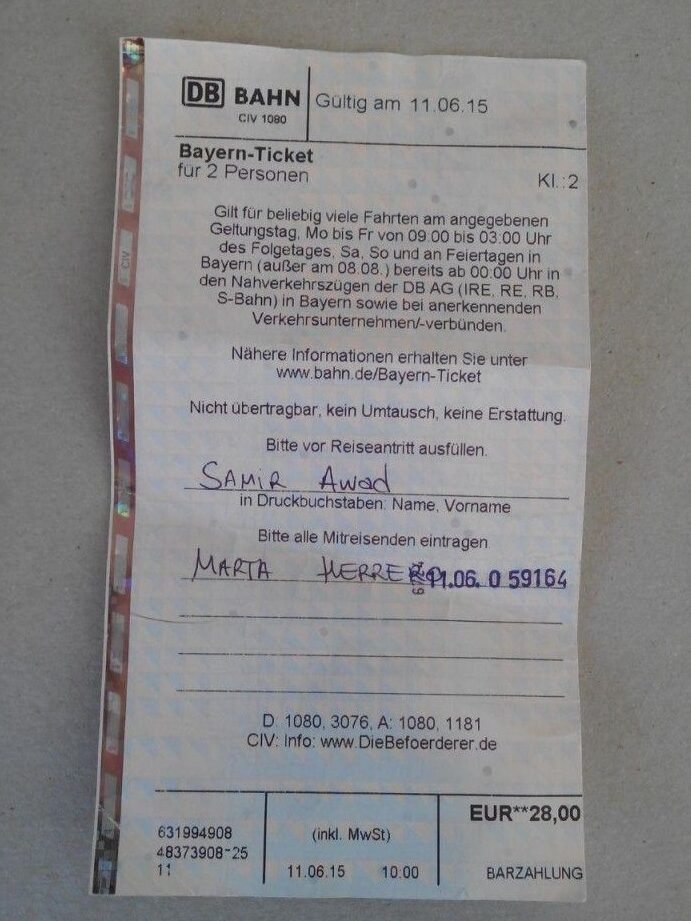 DB BAHN
CIV 1080
Gültig am 11.06.15
Bayern-Ticket
für 2 Personen
Kl.:2
Gilt für beliebig viele Fahrten am angegebenen
Geltungstag, Mo bis Fr von 09:00 bis 03:00 Uhr
des Folgetages, Sa, So und an Feiertagen in
Bayern (außer am 08.08.) bereits ab 00:00 Uhr in
den Nahverkehrszügen der DB AG (IRE, RE, RB,
S-Bahn) in Bayern sowie bei anerkennenden
Verkehrsunternehmen/-verbünden.
Nähere Informationen erhalten Sie unter
www.bahn.de/Bayern-Ticket
Nicht übertragbar, kein Umtausch, keine Erstattung.
Bitte vor Reiseantritt ausfüllen.
SAMIR Awad
in Druckbuchstaben: Name, Vorname
Bitte alle Mitreisenden eintragen
MARTA 11.06. 0 59164
D: 1080, 3076, A: 1080, 1181
CIV: Info: www.DieBefoerderer.de
EUR**28,00
631994908
48373908-25
11
(inkl. MwSt)
11.06.15 10:00
BARZAHLUNG